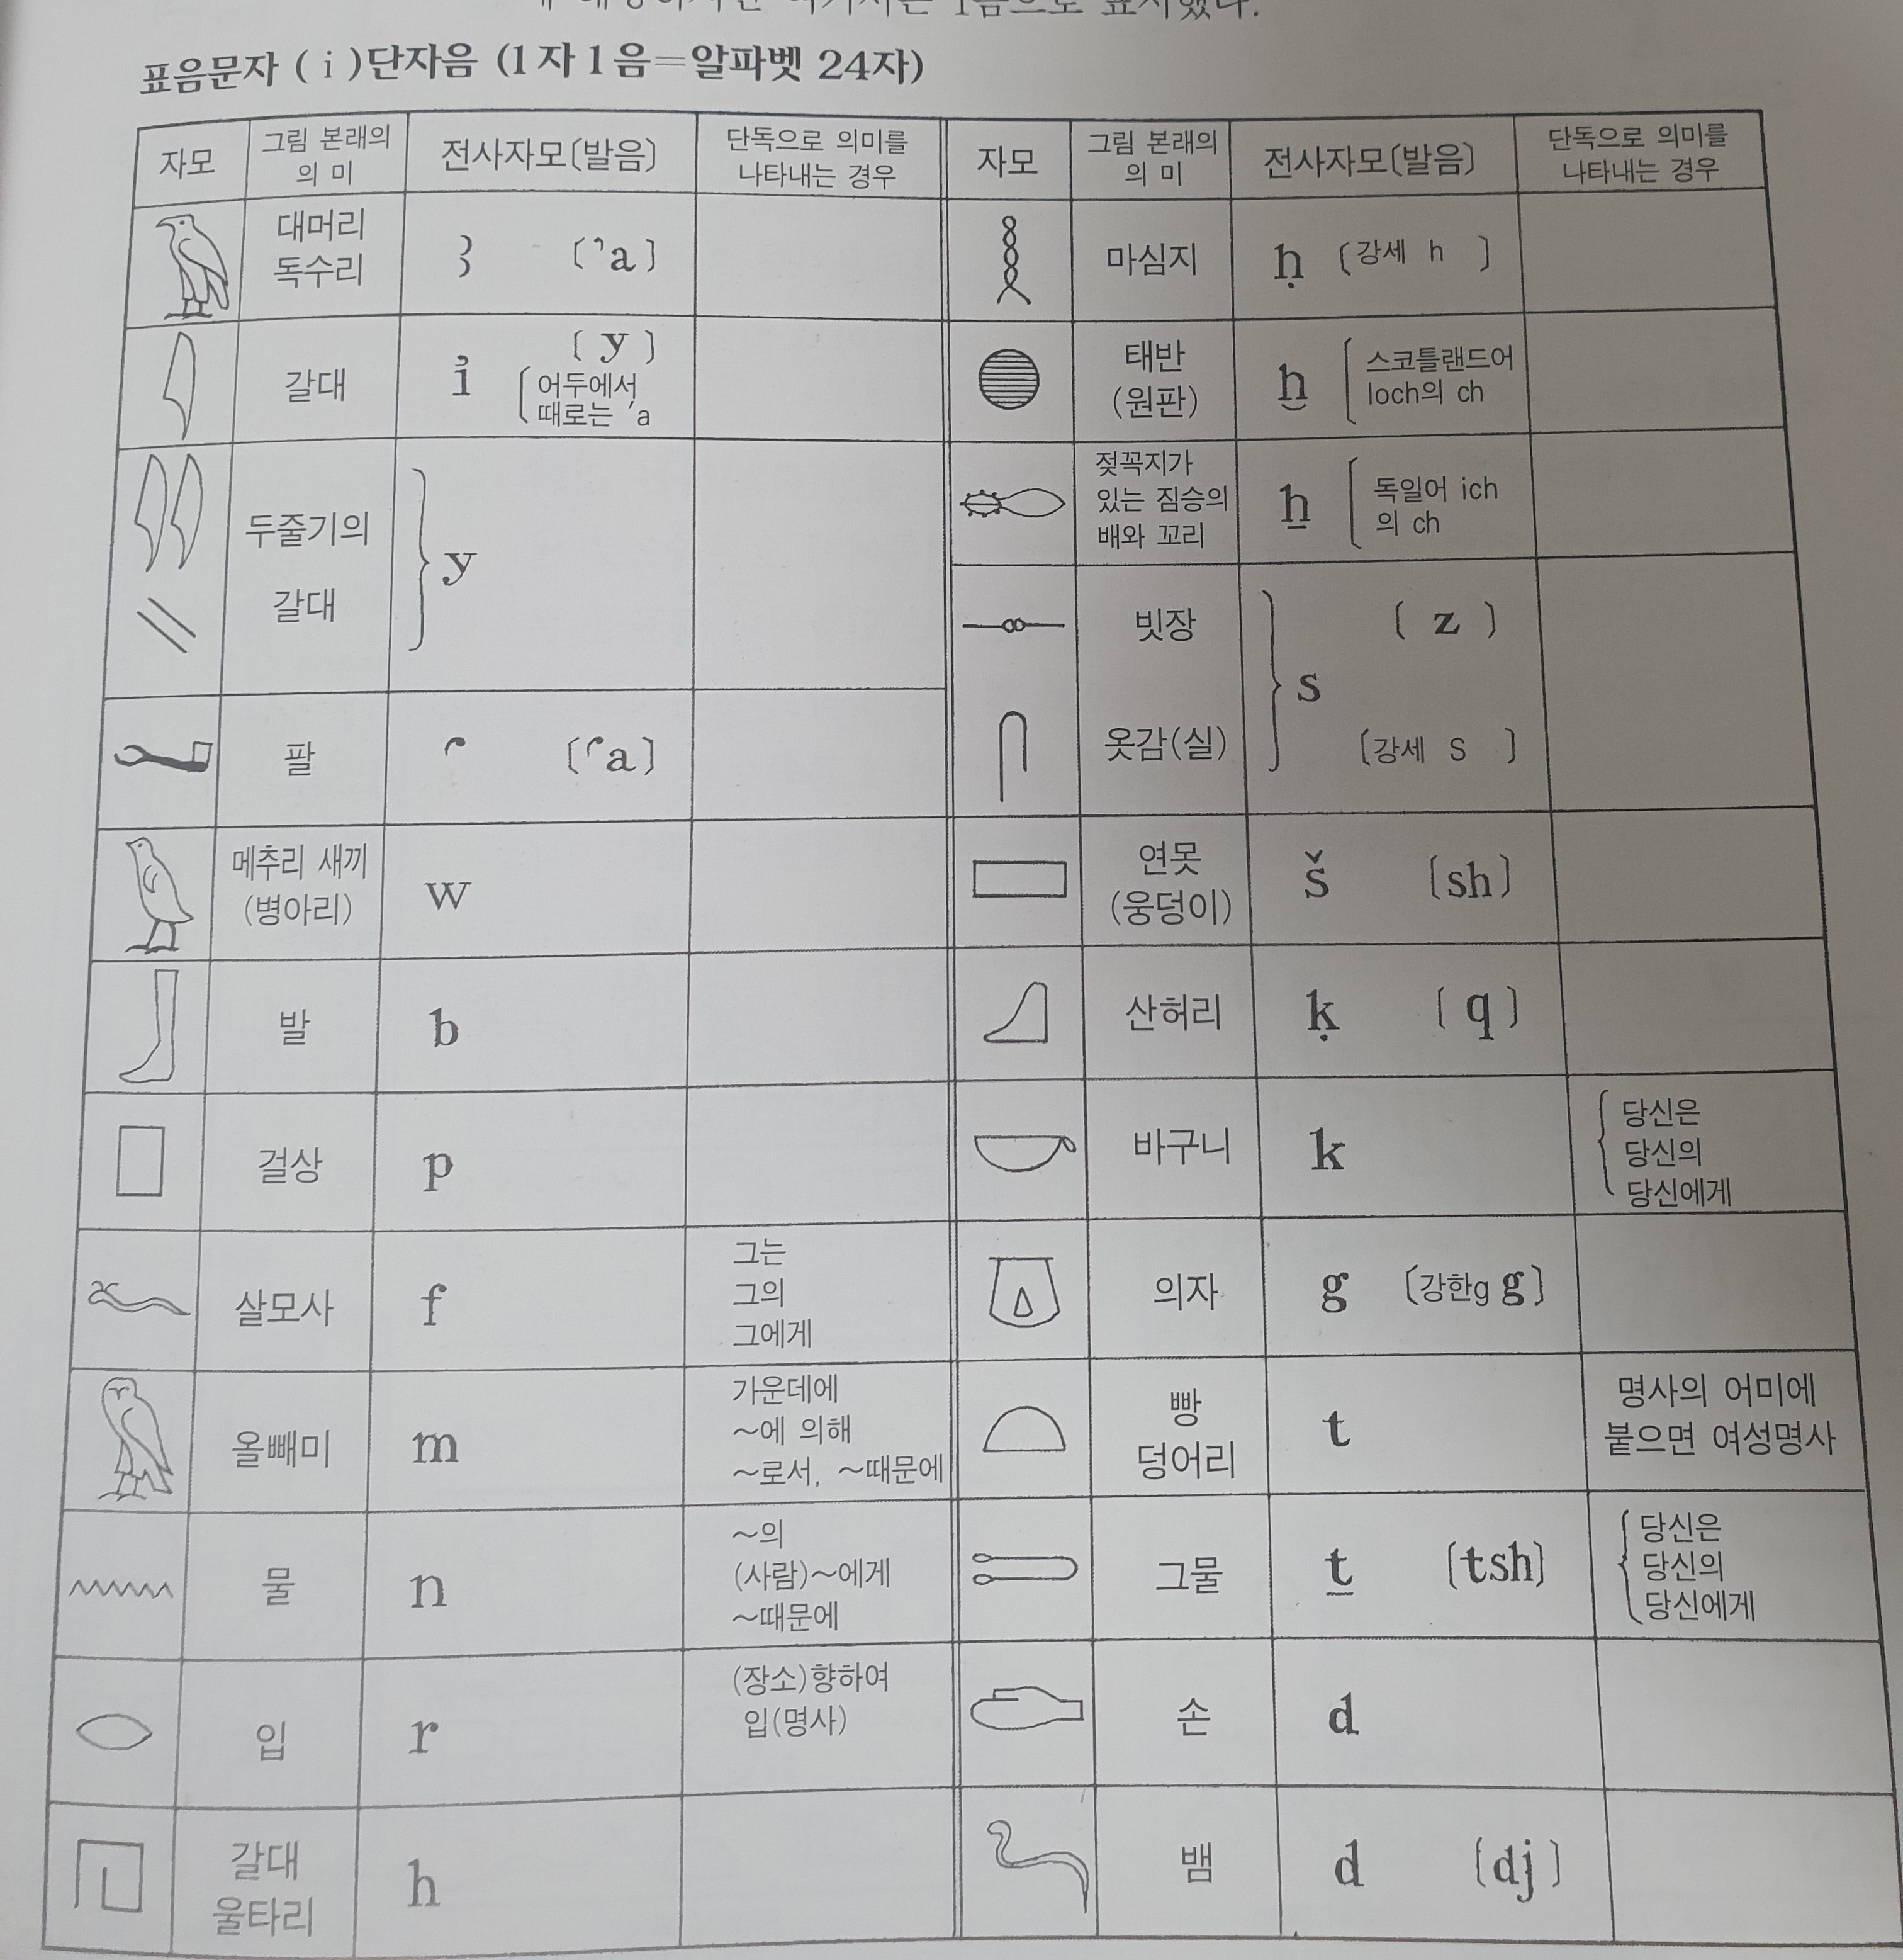 표음문자 ( i )단자음 (1자1음=알파벳 24자)
자모 그림 본래의 의 미 전사자모〔발음〕 단독으로 의미를 나타내는 경우
대머리 독수리 ꜣ 〔’a〕
갈대 i̓ 〔 y 〕 〔어두에서 때로는 ’a
두줄기의 갈대 y
팔 ꜥ 〔ꜥa〕
메추리 새끼 (병아리) w
발 b
걸상 p
살모사 f 그는 그의 그에게
올빼미 m 가운데에 ~에 의해 ~로서, ~때문에
물 n ~의 (사람)~에게 ~때문에
입 r (장소)향하여 입(명사)
갈대 울타리 h
자모 그림 본래의 의 미 전사자모〔발음〕 단독으로 의미를 나타내는 경우
마심지 ḥ 〔강세 h 〕
태반 (원판) ḫ 〔스코틀랜드어 loch의 ch
젖꼭지가 있는 짐승의 배와 꼬리 ẖ 〔독일어 ich 의 ch
빗장 s 〔 z 〕
옷감(실) 〔강세 S 〕
연못 (웅덩이) š 〔sh〕
산허리 ḳ 〔 q 〕
바구니 k 당신은 당신의 당신에게
의자 g 〔강한g g〕
빵 덩어리 t 명사의 어미에 붙으면 여성명사
그물 ṯ 〔tsh〕 당신은 당신의 당신에게
손 d
뱀 d 〔dj〕